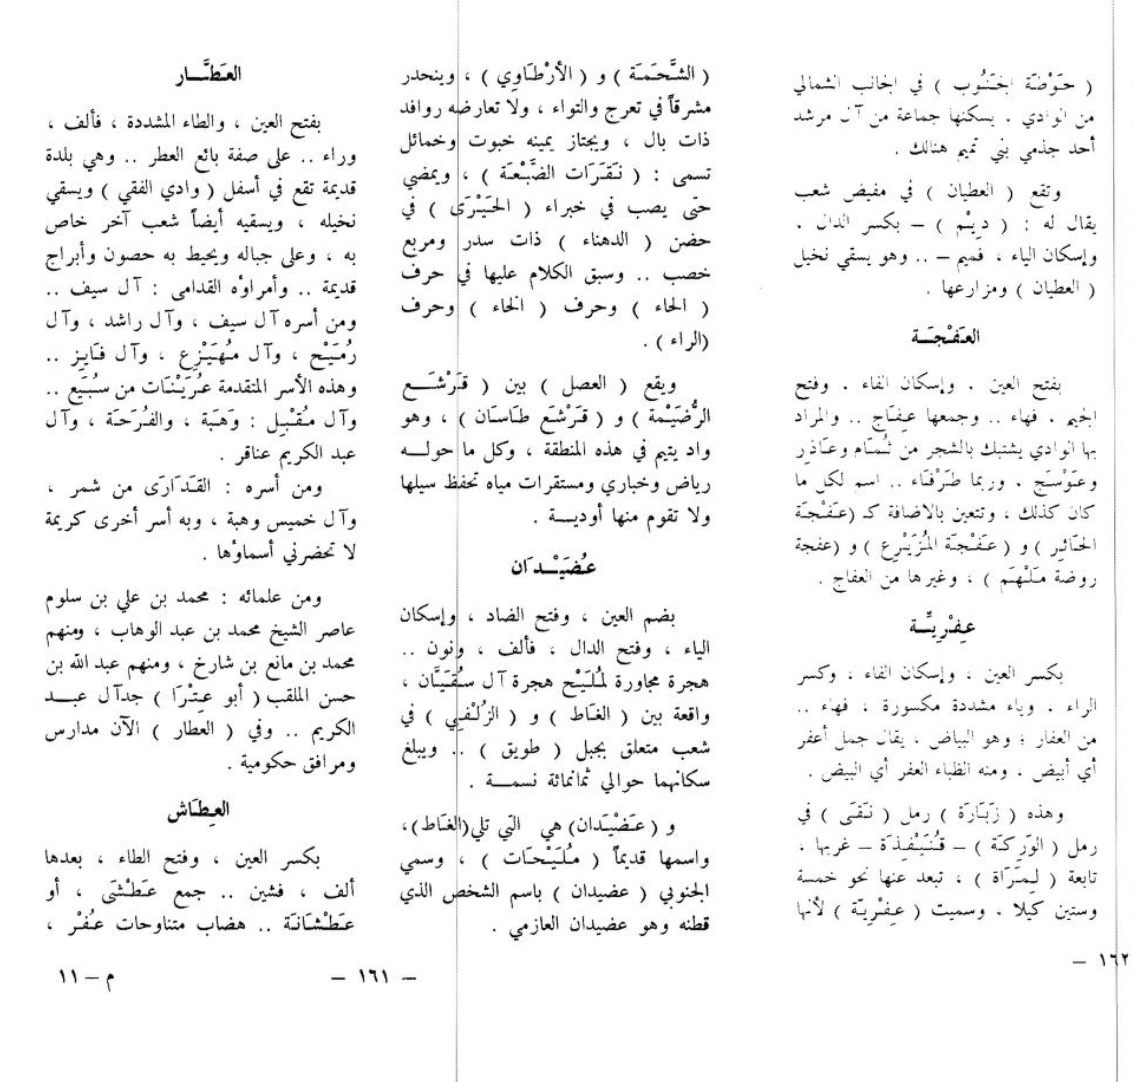 ( حَوْضَة الجَنُوب ) في الجانب الشمالي
من الوادي . يسكنها جماعة من آل مرشد
أحد جذمي بني تميم هنالك .
وتقع ( العطيان ) في مفيض شعب
يقال له : ( دِيْم ) – بكسر الدال .
وإسكان الياء ، فميم – .. وهو يسقي نخيل
( العطيان ) ومزارعها .
العَفْجَة
بفتح العين . وإسكان الفاء . وفتح
الجيم . فهاء .. وجمعها عِفَاج .. والمراد
بها الوادي يشتبك بالشجر من ثُمَام وعَاذِر
وعَوْسَج . وربما طَرْفَاء .. اسم لكل ما
كان كذلك ، وتتعين بالاضافة كـ (عَفْجَة
الحَائِر ) و ( عَفْجَة المُزَيْرِع ) و (عفجة
روضة مَلْهَم ) ، وغيرها من العفاج .
عِفْرِيَّة
بكسر العين ، وإسكان الفاء ، وكسر
الراء . وياء مشددة مكسورة ، فهاء ..
من العفار ؛ وهو البياض . يقال جمل أعفر
أي أبيض . ومنه الظباء العفر أي البيض .
وهذه ( زَبَارَة ) رمل ( نَقَى ) في
رمل ( الوَرِكَة ) – قُنَيْفِذَة – غربها ،
تابعة ( لِمَرَاة ) ، تبعد عنها نحو خمسة
وستين كيلا . وسميت ( عِفْرِيّة ) لأنها
١٦٢ –
( الشَّحَمَة ) و ( الأرْطَاوِي ) ، وينحدر
مشرقاً في تعرج والتواء ، ولا تعارضه روافد
ذات بال ، ويجتاز يمينه خبوت وخمائل
تسمى : ( نَقَرَات الضَّبْعَة ) ، ويمضي
حتى يصب في خبراء ( الحَيْرَى ) في
حضن ( الدهناء ) ذات سدر ومربع
خصب .. وسبق الكلام عليها في حرف
( الحاء ) وحرف ( الخاء ) وحرف
(الراء ) .
ويقع ( العصل ) بين ( قَرْشَع
الرُّضَيْمة ) و ( قَرْشَع طَاسَان ) ، وهو
واد يتيم في هذه المنطقة ، وكل ما حوله
رياض وخباري ومستقرات مياه تحفظ سيلها
ولا تقوم منها أودية .
عُضَيْدَان
بضم العين ، وفتح الضاد ، وإسكان
الياء ، وفتح الدال ، فألف ، ونون ..
هجرة مجاورة لمُلَيْح هجرة آل سُقَيَّان ،
واقعة بين ( الغَاط ) و ( الزُلْفِي ) في
شعب متعلق بجبل ( طويق ) .. ويبلغ
سكانهما حوالي ثمانمائة نسمة .
و ( عَضْيَدان) هي التي تلي(الغَاط)،
واسمها قديماً ( مُلَيْحَات ) ، وسمي
الجنوبي ( عضيدان ) باسم الشخص الذي
قطنه وهو عضيدان العازمي .
– ١٦١ –
العَطَّار
بفتح العين ، والطاء المشددة ، فألف ،
وراء .. على صفة بائع العطر .. وهي بلدة
قديمة تقع في أسفل ( وادي الفقي ) ويسقي
نخيله ، ويسقيه أيضاً شعب آخر خاص
به ، وعلى جباله ويحيط به حصون وأبراج
قديمة .. وأمراؤه القدامى : آل سيف ..
ومن أسره آل سيف ، وآل راشد ، وآل
رُمَيْح ، وآل مُهَيْزِع ، وآل فَايِز ..
وهذه الأسر المتقدمة عُرَيْنَات من سُبَيْع ..
وآل مُقْبِل : وَهَبَة ، والفُرَحَة ، وآل
عبد الكريم عناقر .
ومن أسره : القَدَارَى من شمر ،
وآل خميس وهبة ، وبه أسر أخرى كريمة
لا تحضرني أسماؤها .
ومن علمائه : محمد بن علي بن سلوم
عاصر الشيخ محمد بن عبد الوهاب ، ومنهم
محمد بن مانع بن شارخ ، ومنهم عبد الله بن
حسن الملقب ( أبو عِتْرَا ) جد آل عبد
الكريم .. وفي ( العطار ) الآن مدارس
ومرافق حكومية .
العِطَاش
بكسر العين ، وفتح الطاء ، بعدها
ألف ، فشين .. جمع عَطْشَى ، أو
عَطْشَانَة .. هضاب متناوحات عُفْر ،
م – ١١